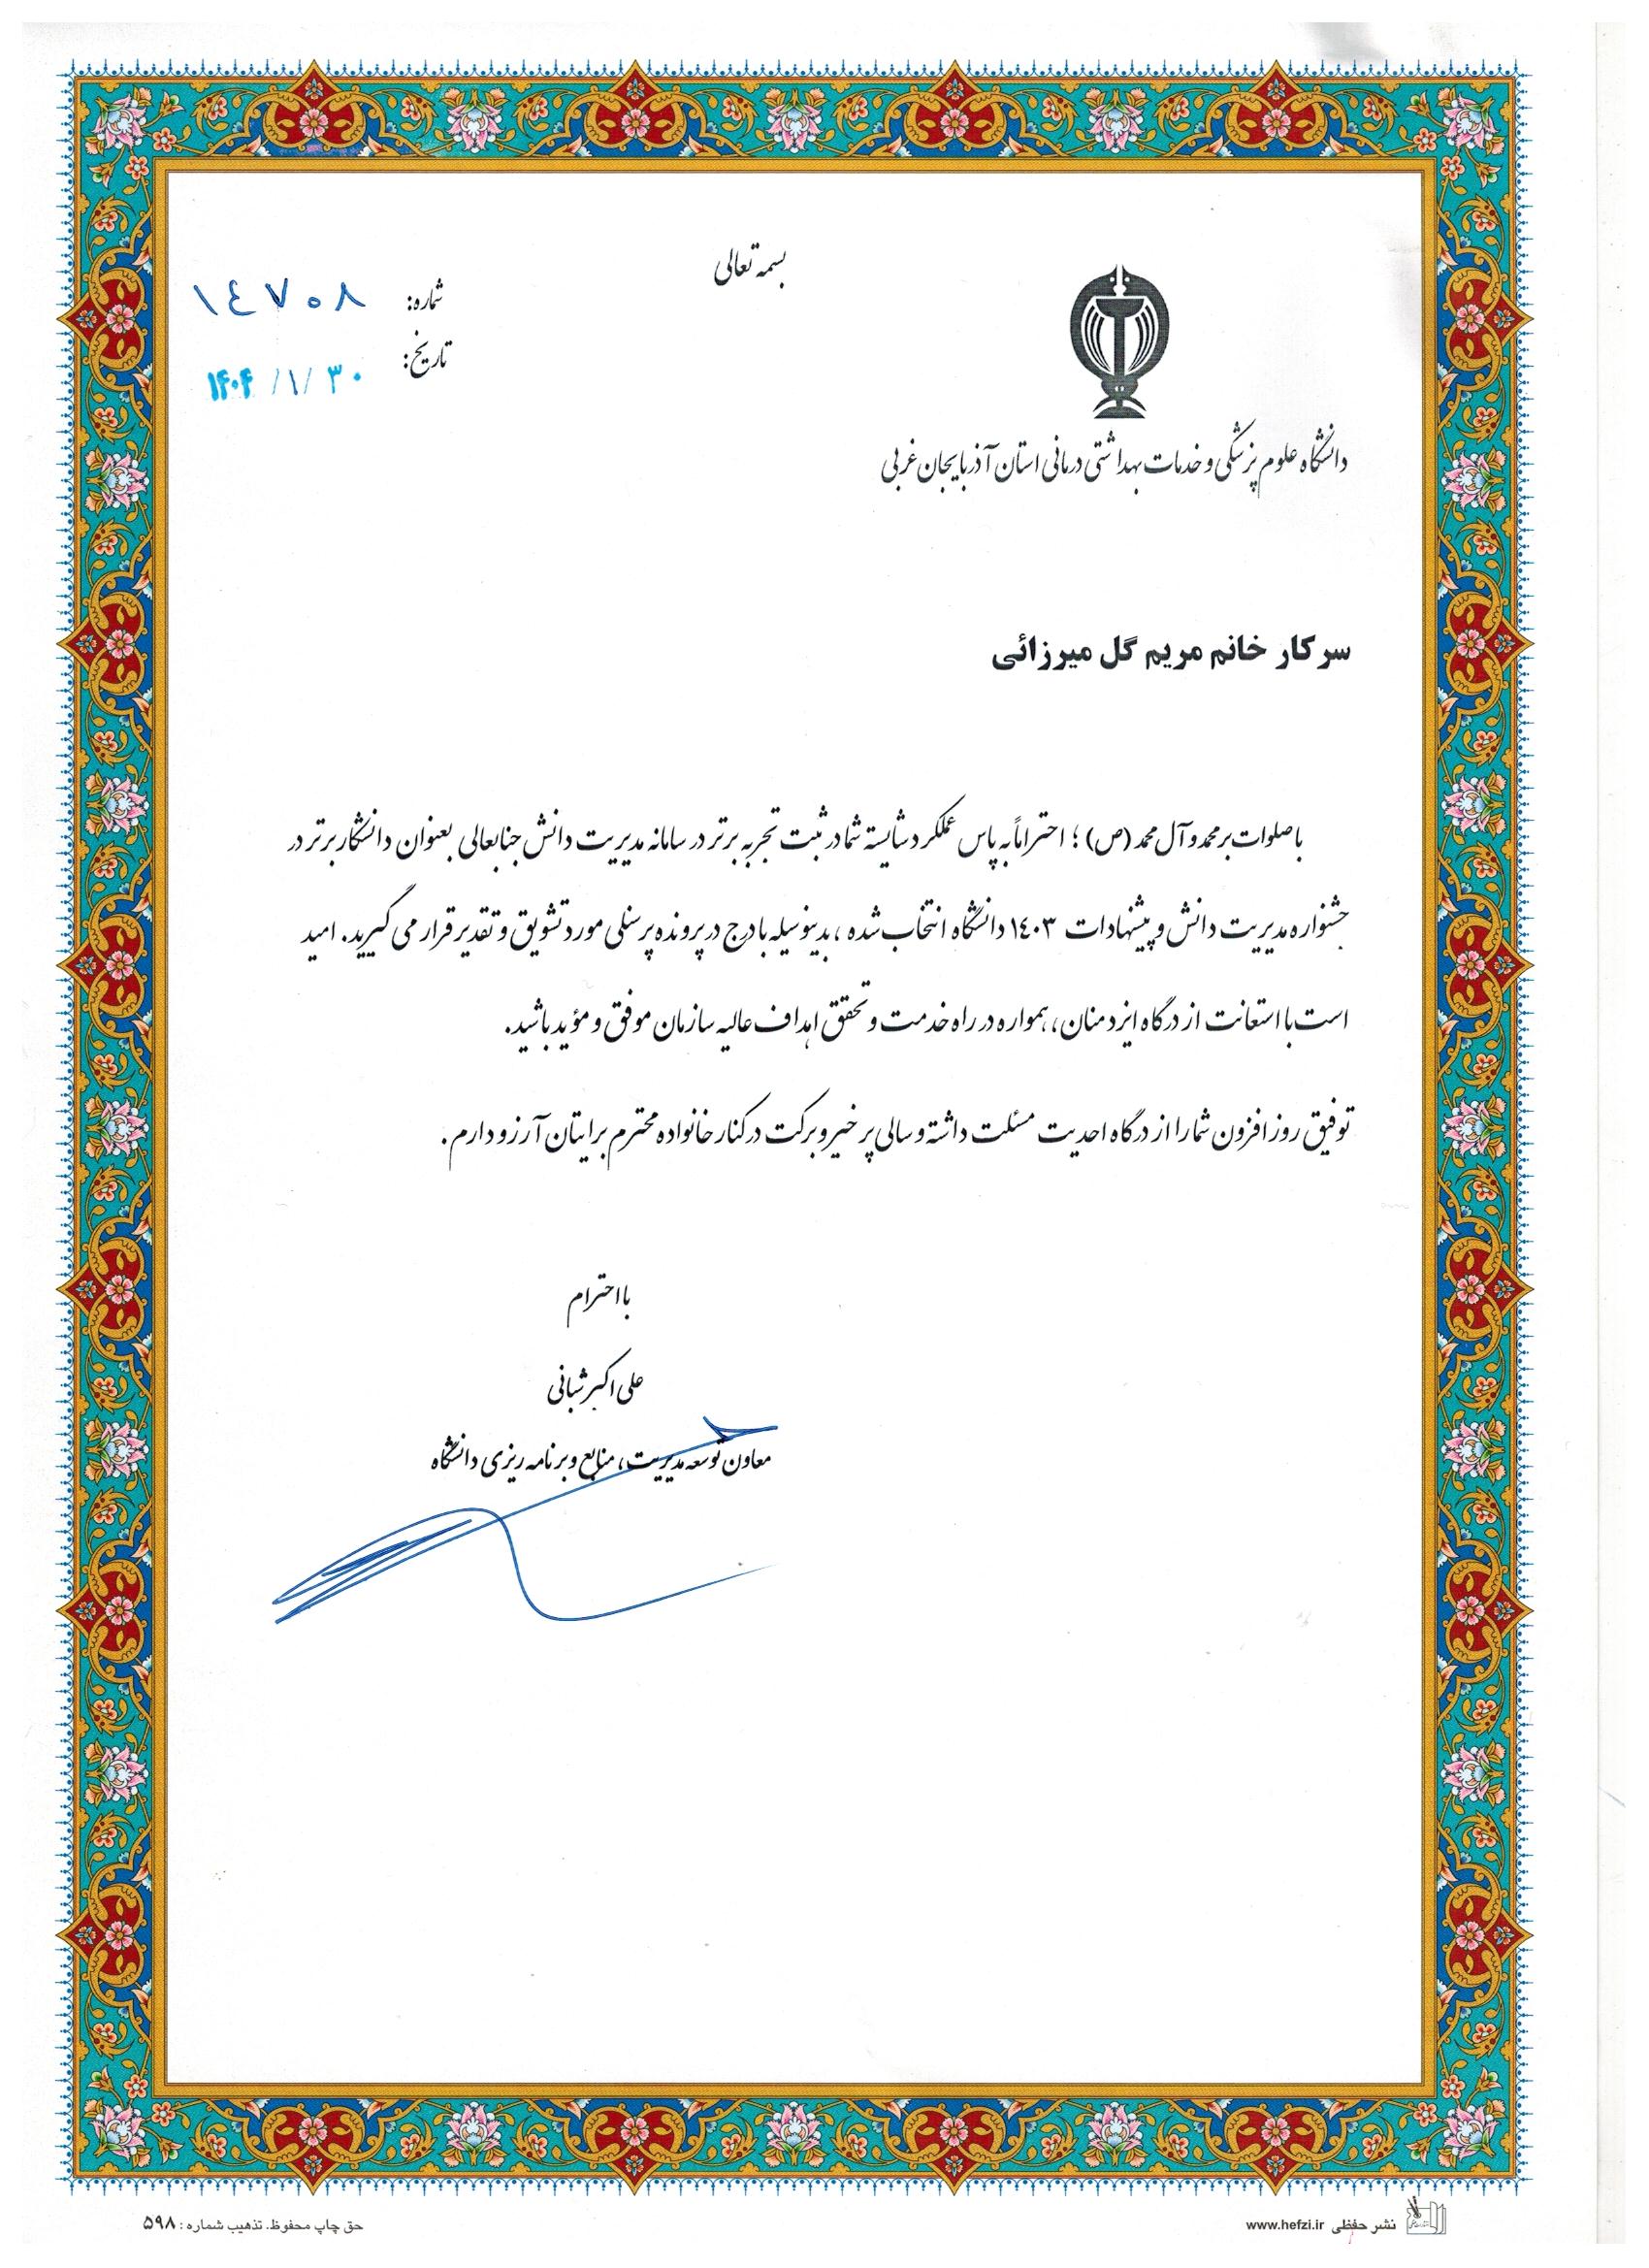 بسمه تعالی
شماره: ١٤٧٠٨
تاریخ: ۱۴۰۴/۱/۳۰
دانشگاه علوم پزشکی و خدمات بهداشتی درمانی استان آذربایجان غربی
سرکار خانم مریم گل میرزائی
با صلوات بر محمد و آل محمد (ص) ؛ احتراماً به پاس عملکرد شایسته شما در ثبت تجربه برتر در سامانه مدیریت دانش جنابعالی بعنوان دانشکار برتر در
جشنواره مدیریت دانش و پیشنهادات ١٤٠٣ دانشگاه انتخاب شده ، بدینوسیله با درج در پرونده پرسنلی مورد تشویق و تقدیر قرار می گیرید. امید
است با استعانت از درگاه ایزد منان، همواره در راه خدمت و تحقق اهداف عالیه سازمان موفق و مؤید باشید.
توفیق روز افزون شما را از درگاه احدیت مسئلت داشته و سالی پر خیر و برکت در کنار خانواده محترم برایتان آرزو دارم .
با احترام
علی اکبر شبانی
معاون توسعه مدیریت، منابع و برنامه ریزی دانشگاه
نشر حفظی www.hefzi.ir
حق چاپ محفوظ. تذهیب شماره : ۵۹۸